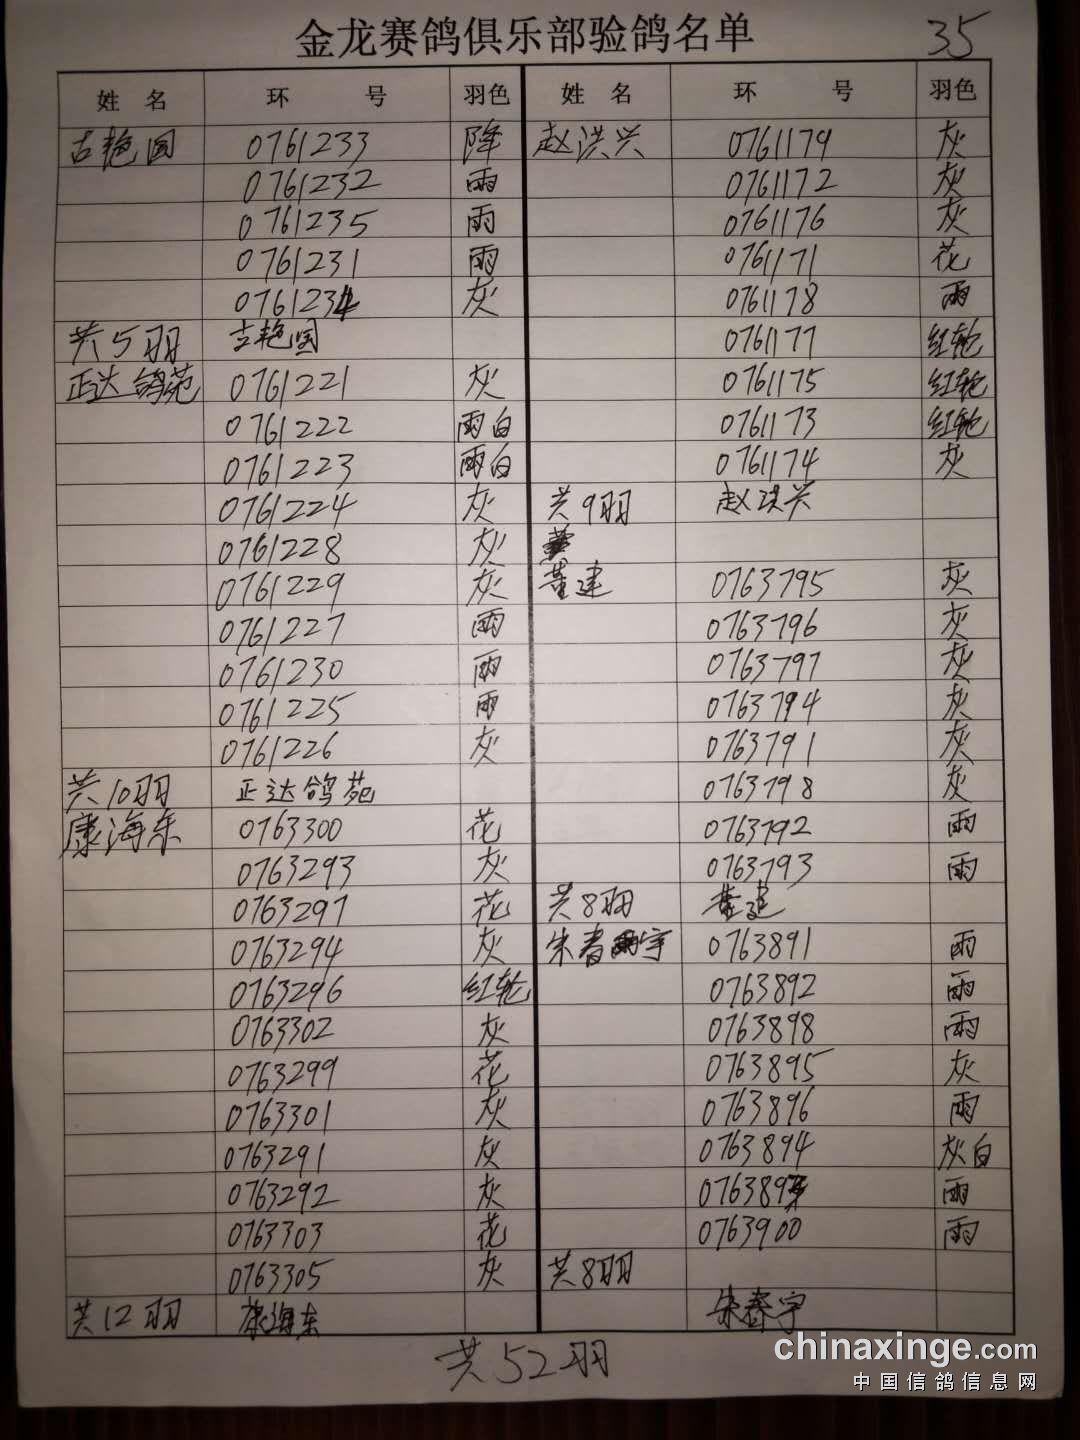 金龙赛鸽俱乐部验鸽名单
35
姓 名 环 号 羽色
古艳国 0761233 降
0761232 雨
0761235 雨
0761231 雨
0761234 灰
共5羽 古艳国
正达鸽苑 0761221 灰
0761222 雨白
0761223 雨白
0761224 灰
0761228 灰
0761229 灰
0761227 雨
0761230 雨
0761225 雨
0761226 灰
共10羽 正达鸽苑
康海东 0763300 花
0763293 灰
0763297 花
0763294 灰
0763296 红轮
0763302 灰
0763299 花
0763301 灰
0763291 灰
0763292 灰
0763303 花
0763305 灰
共12羽 康海东
姓 名 环 号 羽色
赵洪兴 0761179 灰
0761172 灰
0761176 灰
0761171 花
0761178 雨
0761177 红轮
0761175 红轮
0761173 红轮
0761174 灰
共9羽 赵洪兴
董建 0763795 灰
0763796 灰
0763797 灰
0763794 灰
0763791 灰
0763798 灰
0763792 雨
0763793 雨
共8羽 董建
朱春宇 0763891 雨
0763892 雨
0763898 雨
0763895 灰
0763896 雨
0763894 灰白
雨
0763900 雨
共8羽
朱春宇
共52羽
chinaxinge.com
中国信鸽信息网